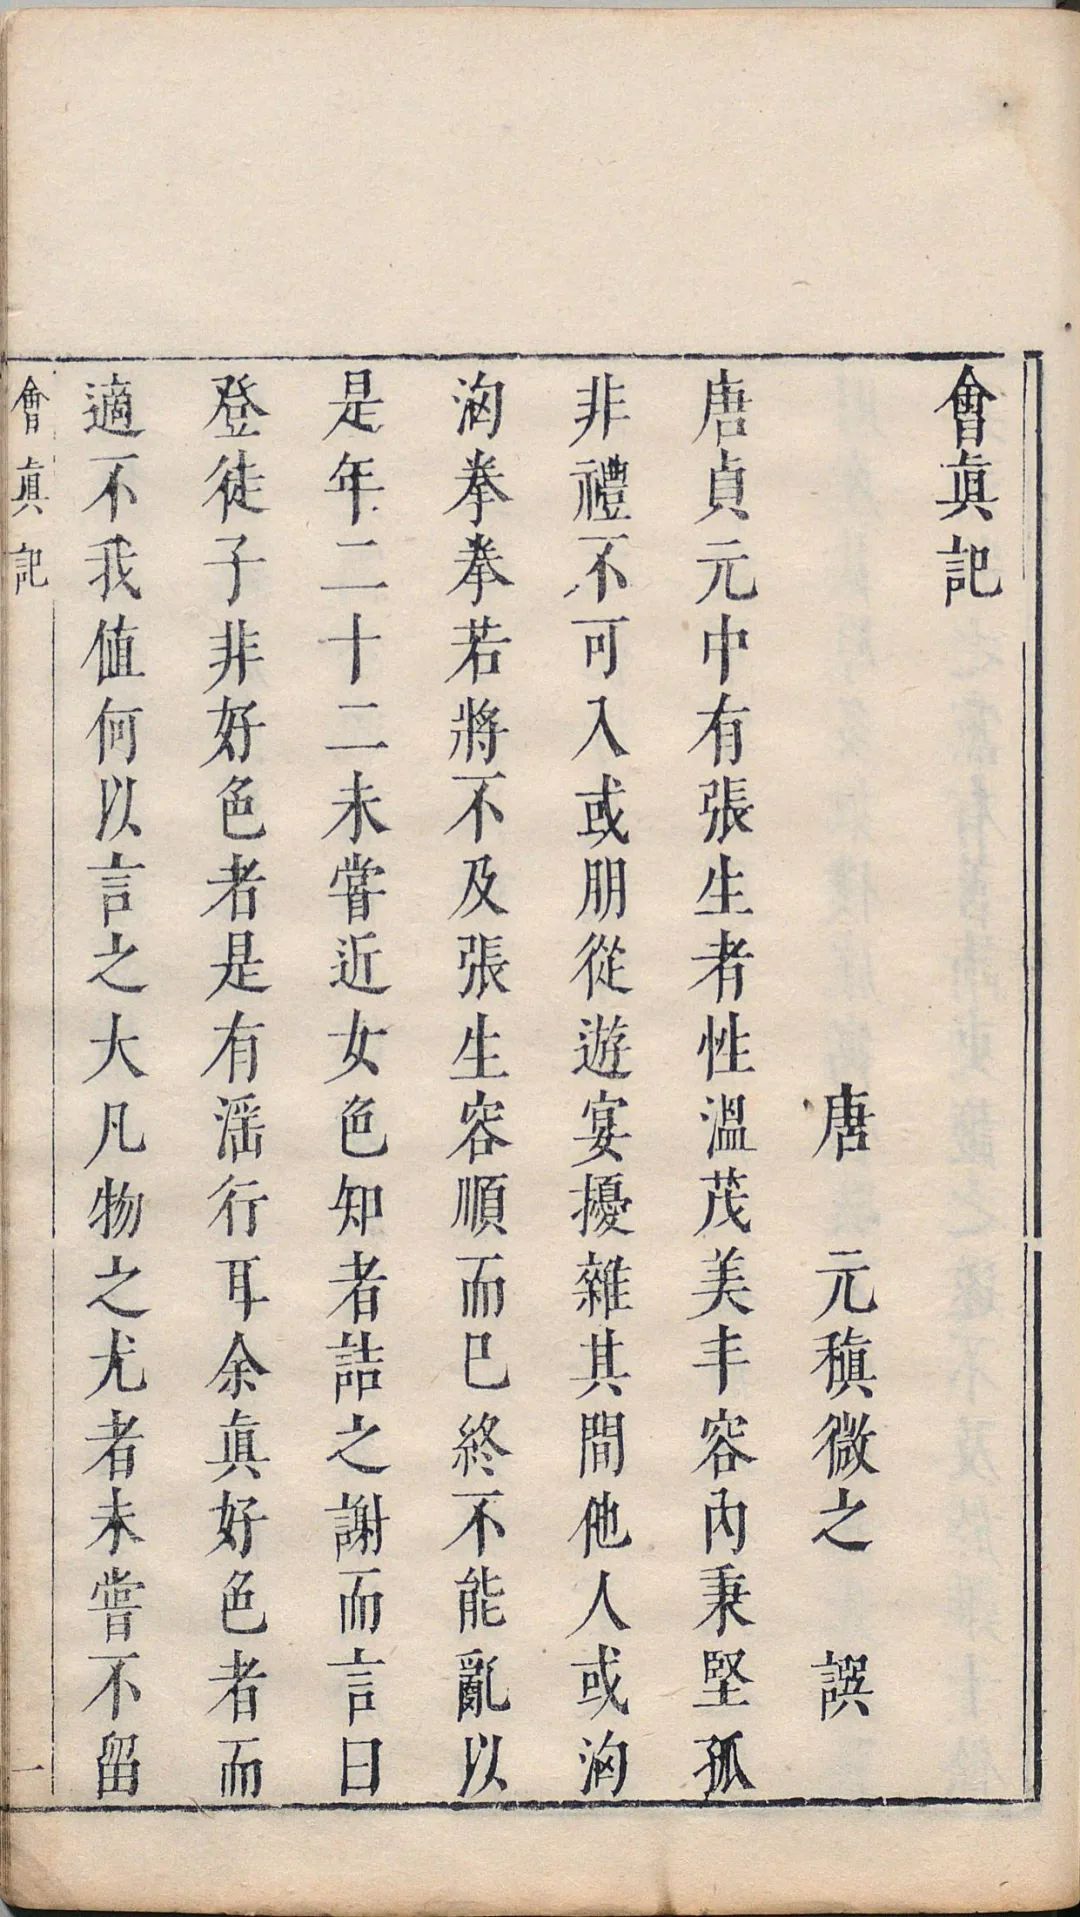 會眞記
唐 元稹微之 譔
唐貞元中有張生者性溫茂美丰容內秉堅孤
非禮不可入或朋從遊宴擾雜其間他人或洶
洶拳拳若將不及張生容順而已終不能亂以
是年二十二未嘗近女色知者詰之謝而言曰
登徒子非好色者是有淫行耳余眞好色者而
適不我值何以言之大凡物之尤者未嘗不留
會眞記 一